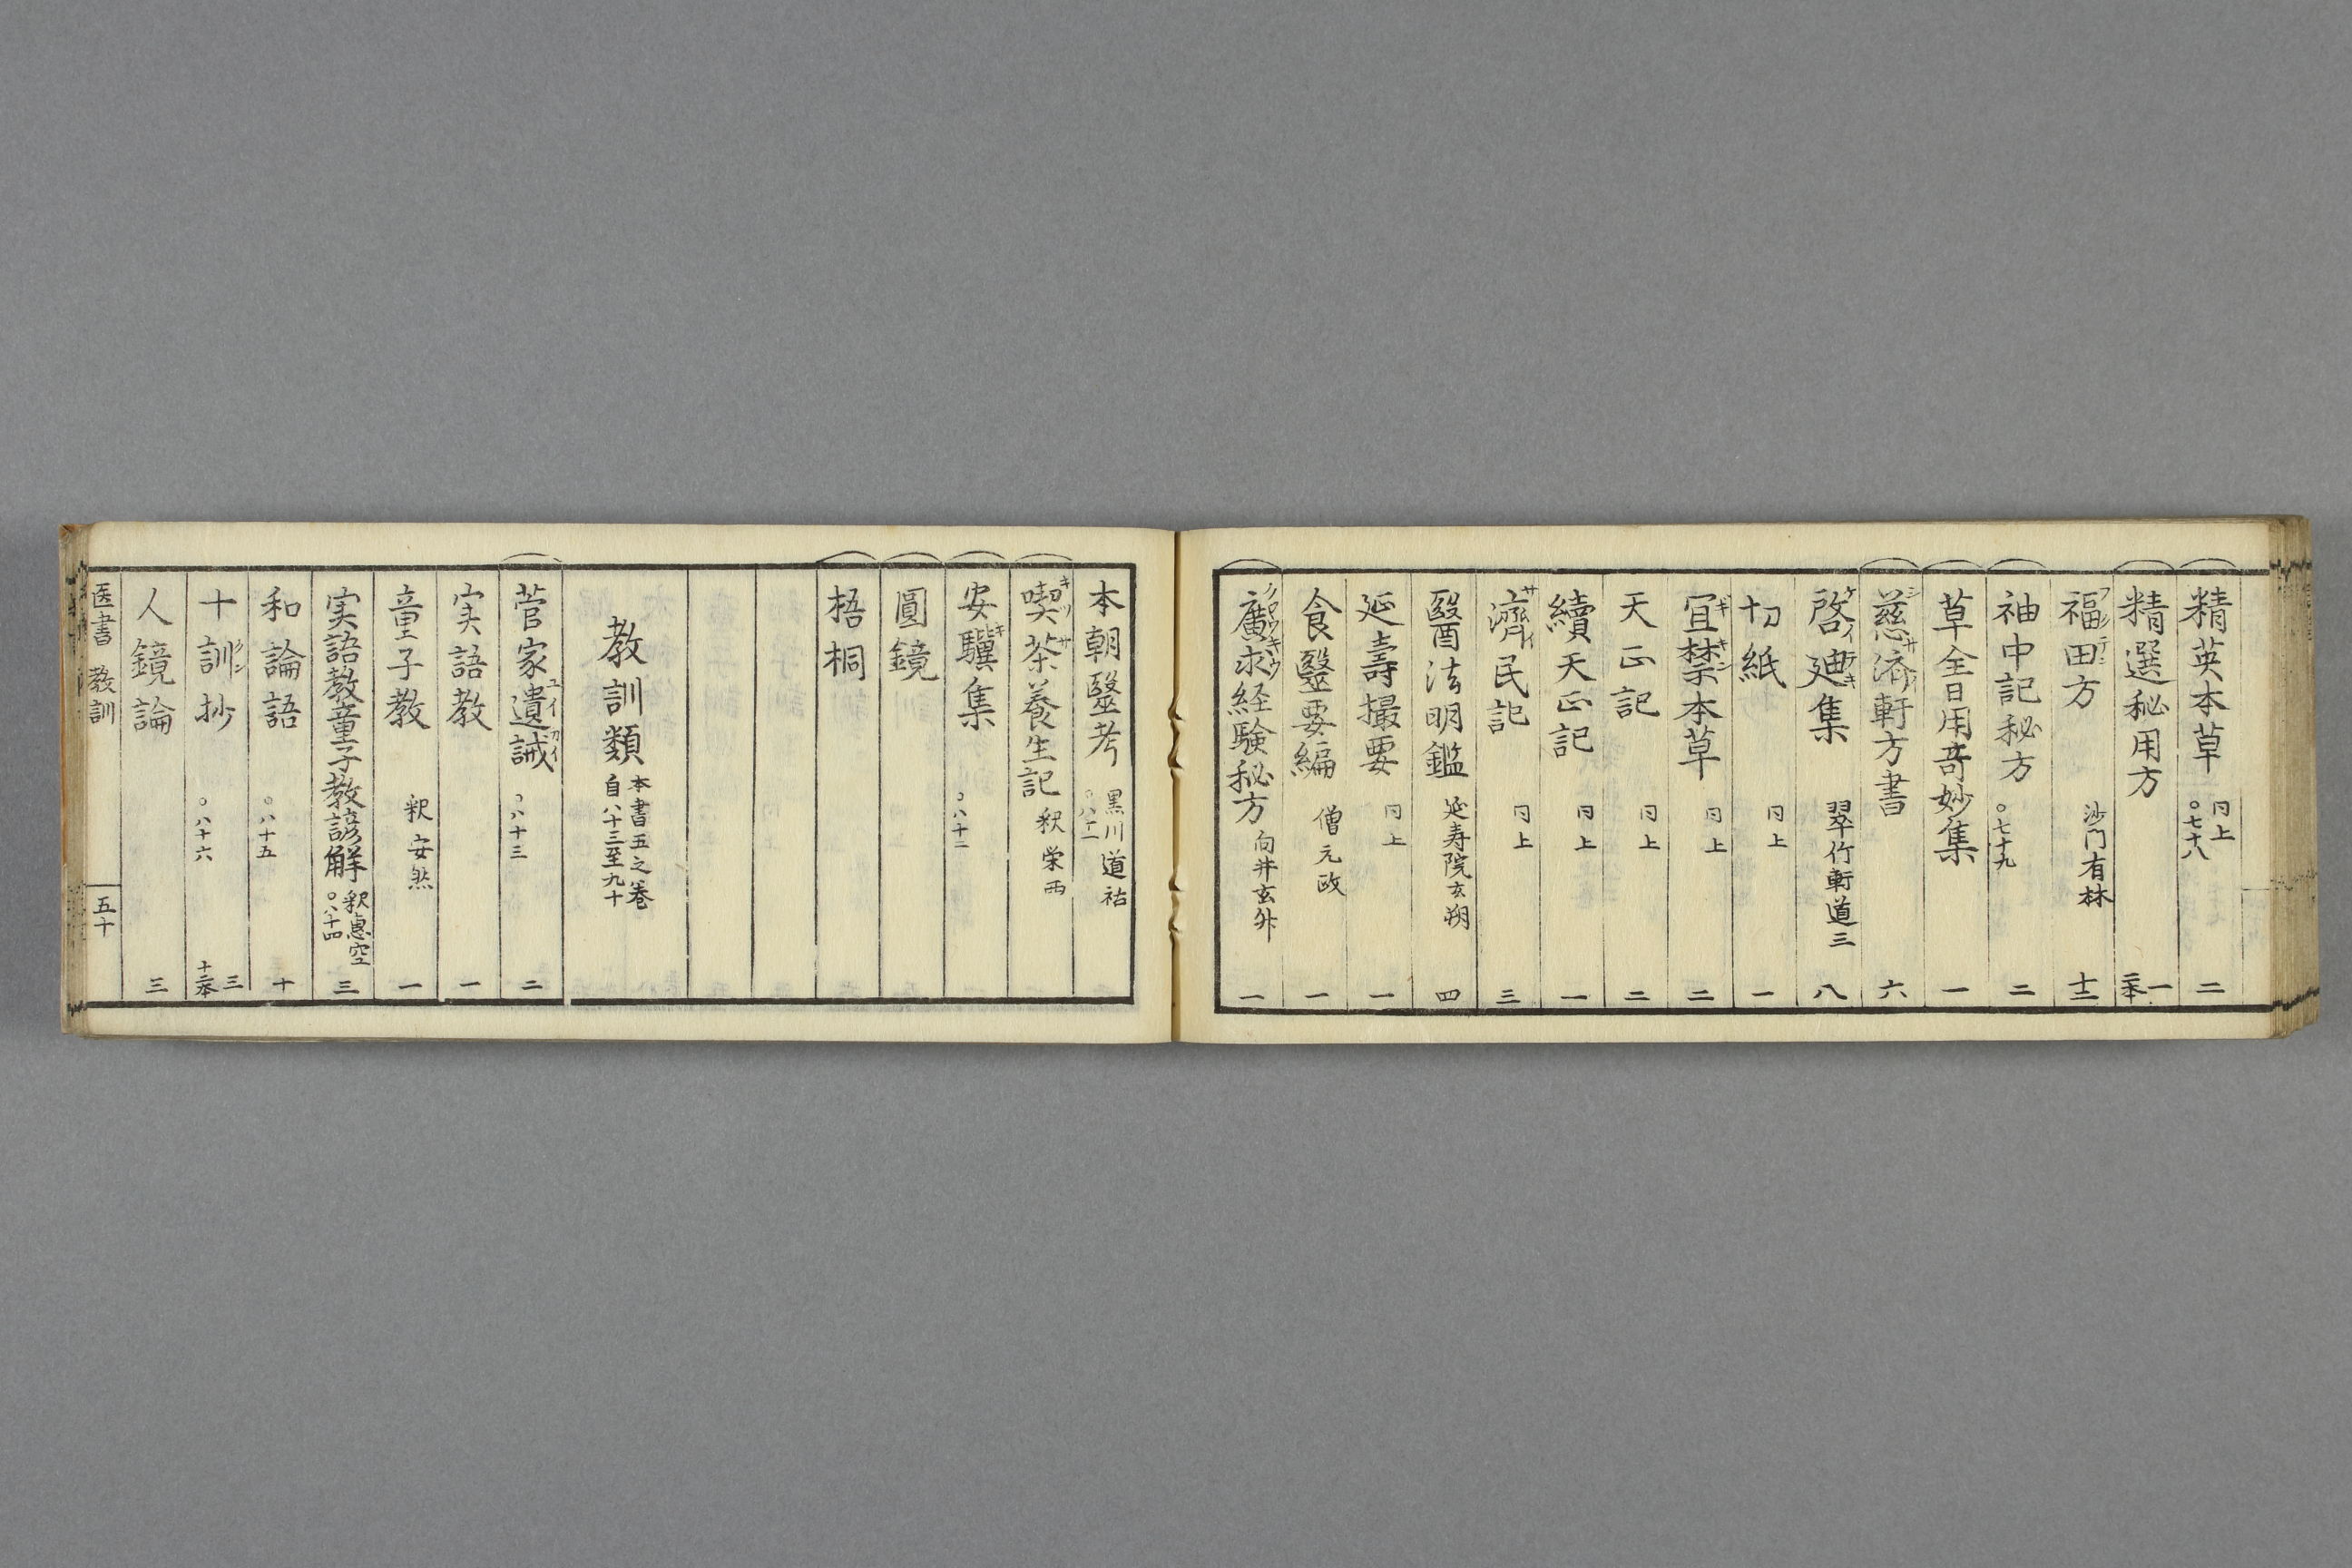 精英本草 同上 〇七十八 二
精選秘用方 一 二本
福田方 沙門有林 十二
袖中記秘方 〇七十九 二
草全日用奇妙集 一
慈済軒方書 六
啓廸集 翠竹軒道三 八
切紙 同上 一
宜禁本草 同上 二
天正記 同上 二
續天正記 同上 一
濟民記 同上 三
醫法明鑑 延寿院玄朔 四
延壽撮要 同上 一
食醫要編 僧元政 一
廣求経験秘方 向井玄升 一
本朝醫考 黒川道祐
喫茶養生記 釈栄西
安驥集 〇八十二
圓鏡
梧桐
教訓類 本書五之巻 自八十三至九十
菅家遺誡 〇八十三 二
実語教 一
童子教 釈安然 一
実語教童子教諺解 釈恵空 〇八十四 三
和論語 〇八十五 十
十訓抄 〇八十六 三
人鏡論 三
医書 教訓 五十